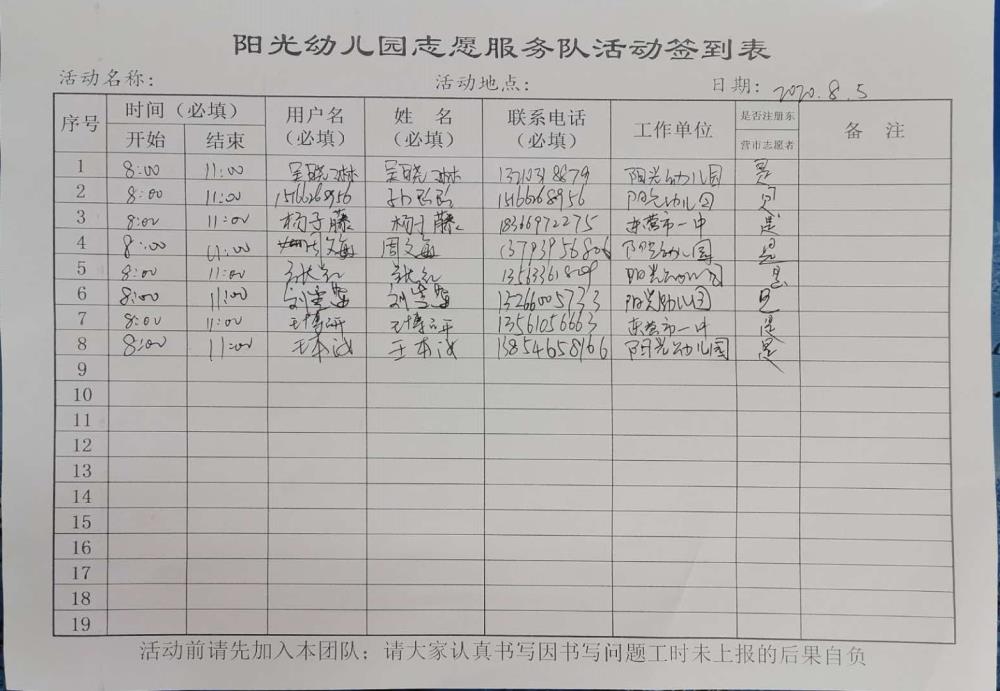 阳光幼儿园志愿服务队活动签到表
活动名称： 活动地点： 日期：2020.8.5
序号 时间（必填） 用户名（必填） 姓名（必填） 联系电话（必填） 工作单位 是否注册东营市志愿者 备注
开始 结束
1 8:00 11:00 吴晓琳 吴晓琳 阳光幼儿园 是
2 8:00 11:00 15166268956 阳光幼儿园 是
3 8:00 11:00 杨子藤 杨子藤 18366972275 东营市一中 是
4 8:00 11:00 周文海 周文海 13793956806 阳光幼儿园 是
5 8:00 11:00 阳光幼儿园 是
6 8:00 11:00 13266005733 阳光幼儿园 是
7 8:00 11:00 王博研 王博研 13561056663 东营市一中 是
8 8:00 11:00 13854658166 阳光幼儿园 是
9
10
11
12
13
14
15
16
17
18
19
活动前请先加入本团队；请大家认真书写因书写问题工时未上报的后果自负